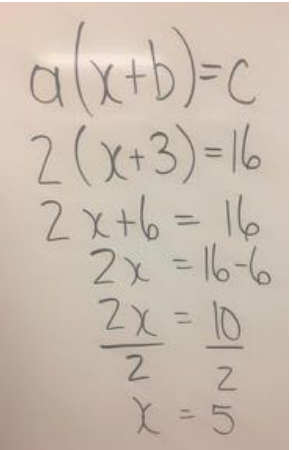 a(x+b)=c
2(x+3)=16
2x+6 = 16
2x = 16-6
2x/2 = 10/2
x = 5